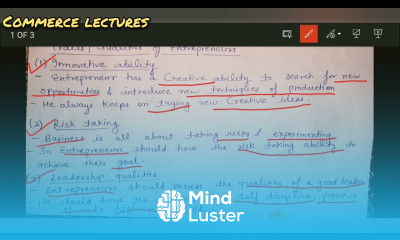 Commerce lectures
1 OF 3
Traits / Qualities of Entrepreneurs
(1) Innovative ability
- Entrepreneur has a Creative ability to search for new
opportunities & introduce new techniques of production
- He always keeps on trying new Creative ideas.
(2) Risk taking
- Business is all about taking risks & experimenting
- So Entrepreneurs should have the risk taking ability to
achieve their goal.
(3) Leadership qualities
- Entrepreneurs should possess the qualities of a good leader
He should have the self discipline, presence
Mind
Luster